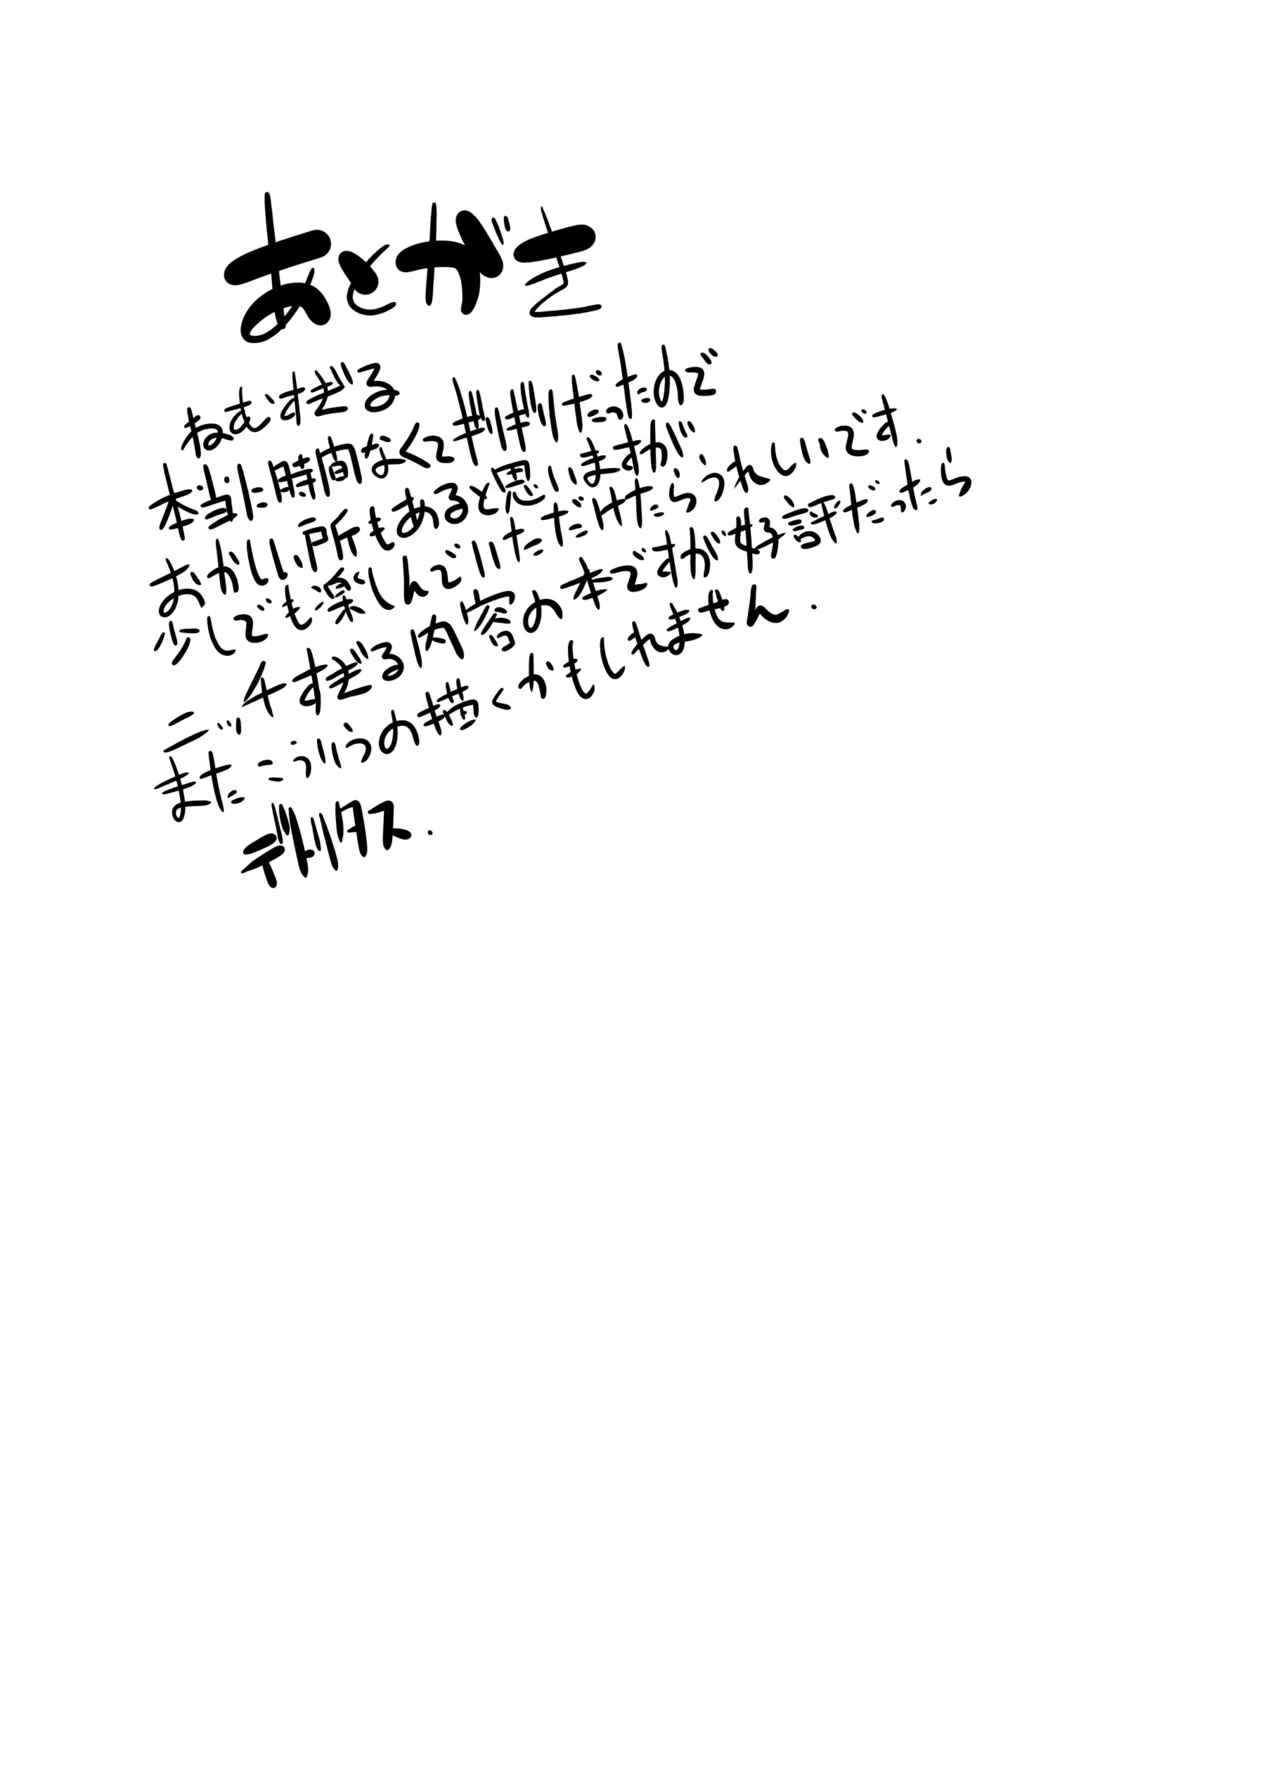 あとがき
ねむすぎる
本当に時間なくてギリギリだったので
おかしい所もあると思いますが
少しでも楽しんでいただけたらうれしいです.
ニッチすぎる内容の本ですが好評だったら
またこういうの描くかもしれません.
デトリタス.